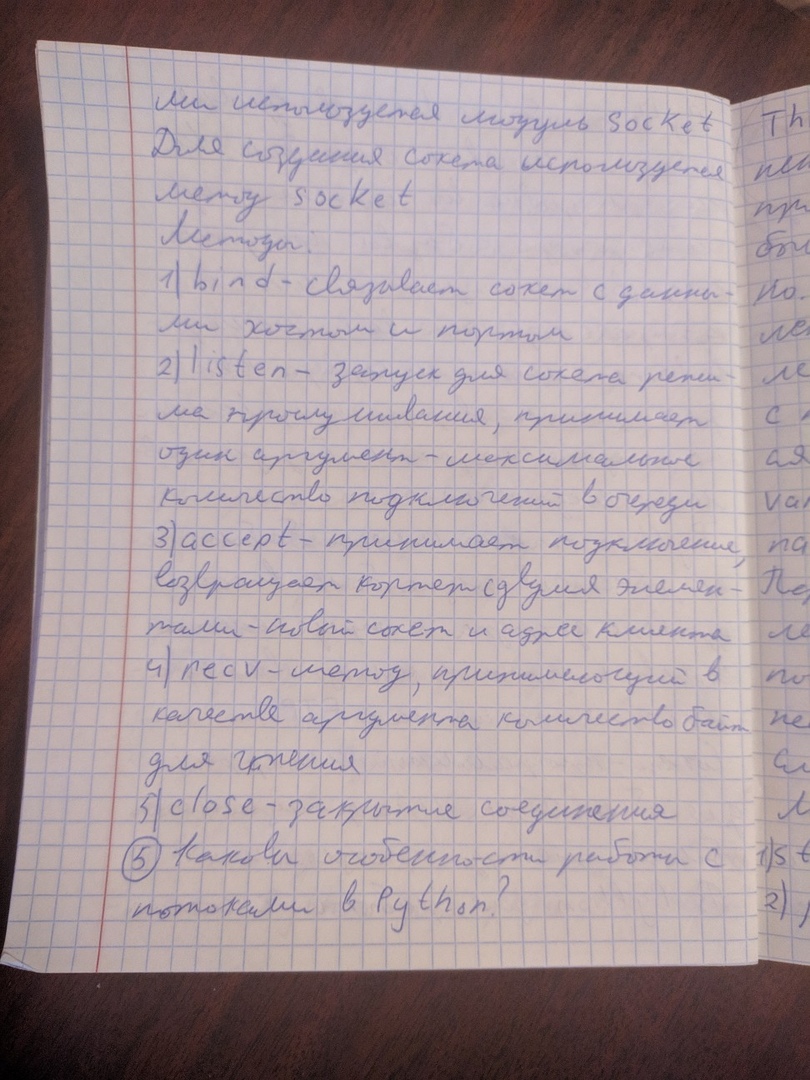 ми используется модуль socket
Для создания сокета используется
метод socket
Методы:
1) bind - связывает сокет с данны-
ми хостом и портом
2) listen - запуск для сокета режи-
ма прослушивания, принимает
один аргумент - максимальное
количество подключений в очереди
3) accept - принимает подключение,
возвращает кортеж с двумя элемен-
тами - новый сокет и адрес клиента
4) recv - метод, принимающий в
качестве аргумента количество байт
для чтения
5) close - закрытие соединения
5 Каковы особенности работы с
потоками в Python?
Th
пр
бы
по.
ле
с
ая
van
па
ле
по
1) st
2)